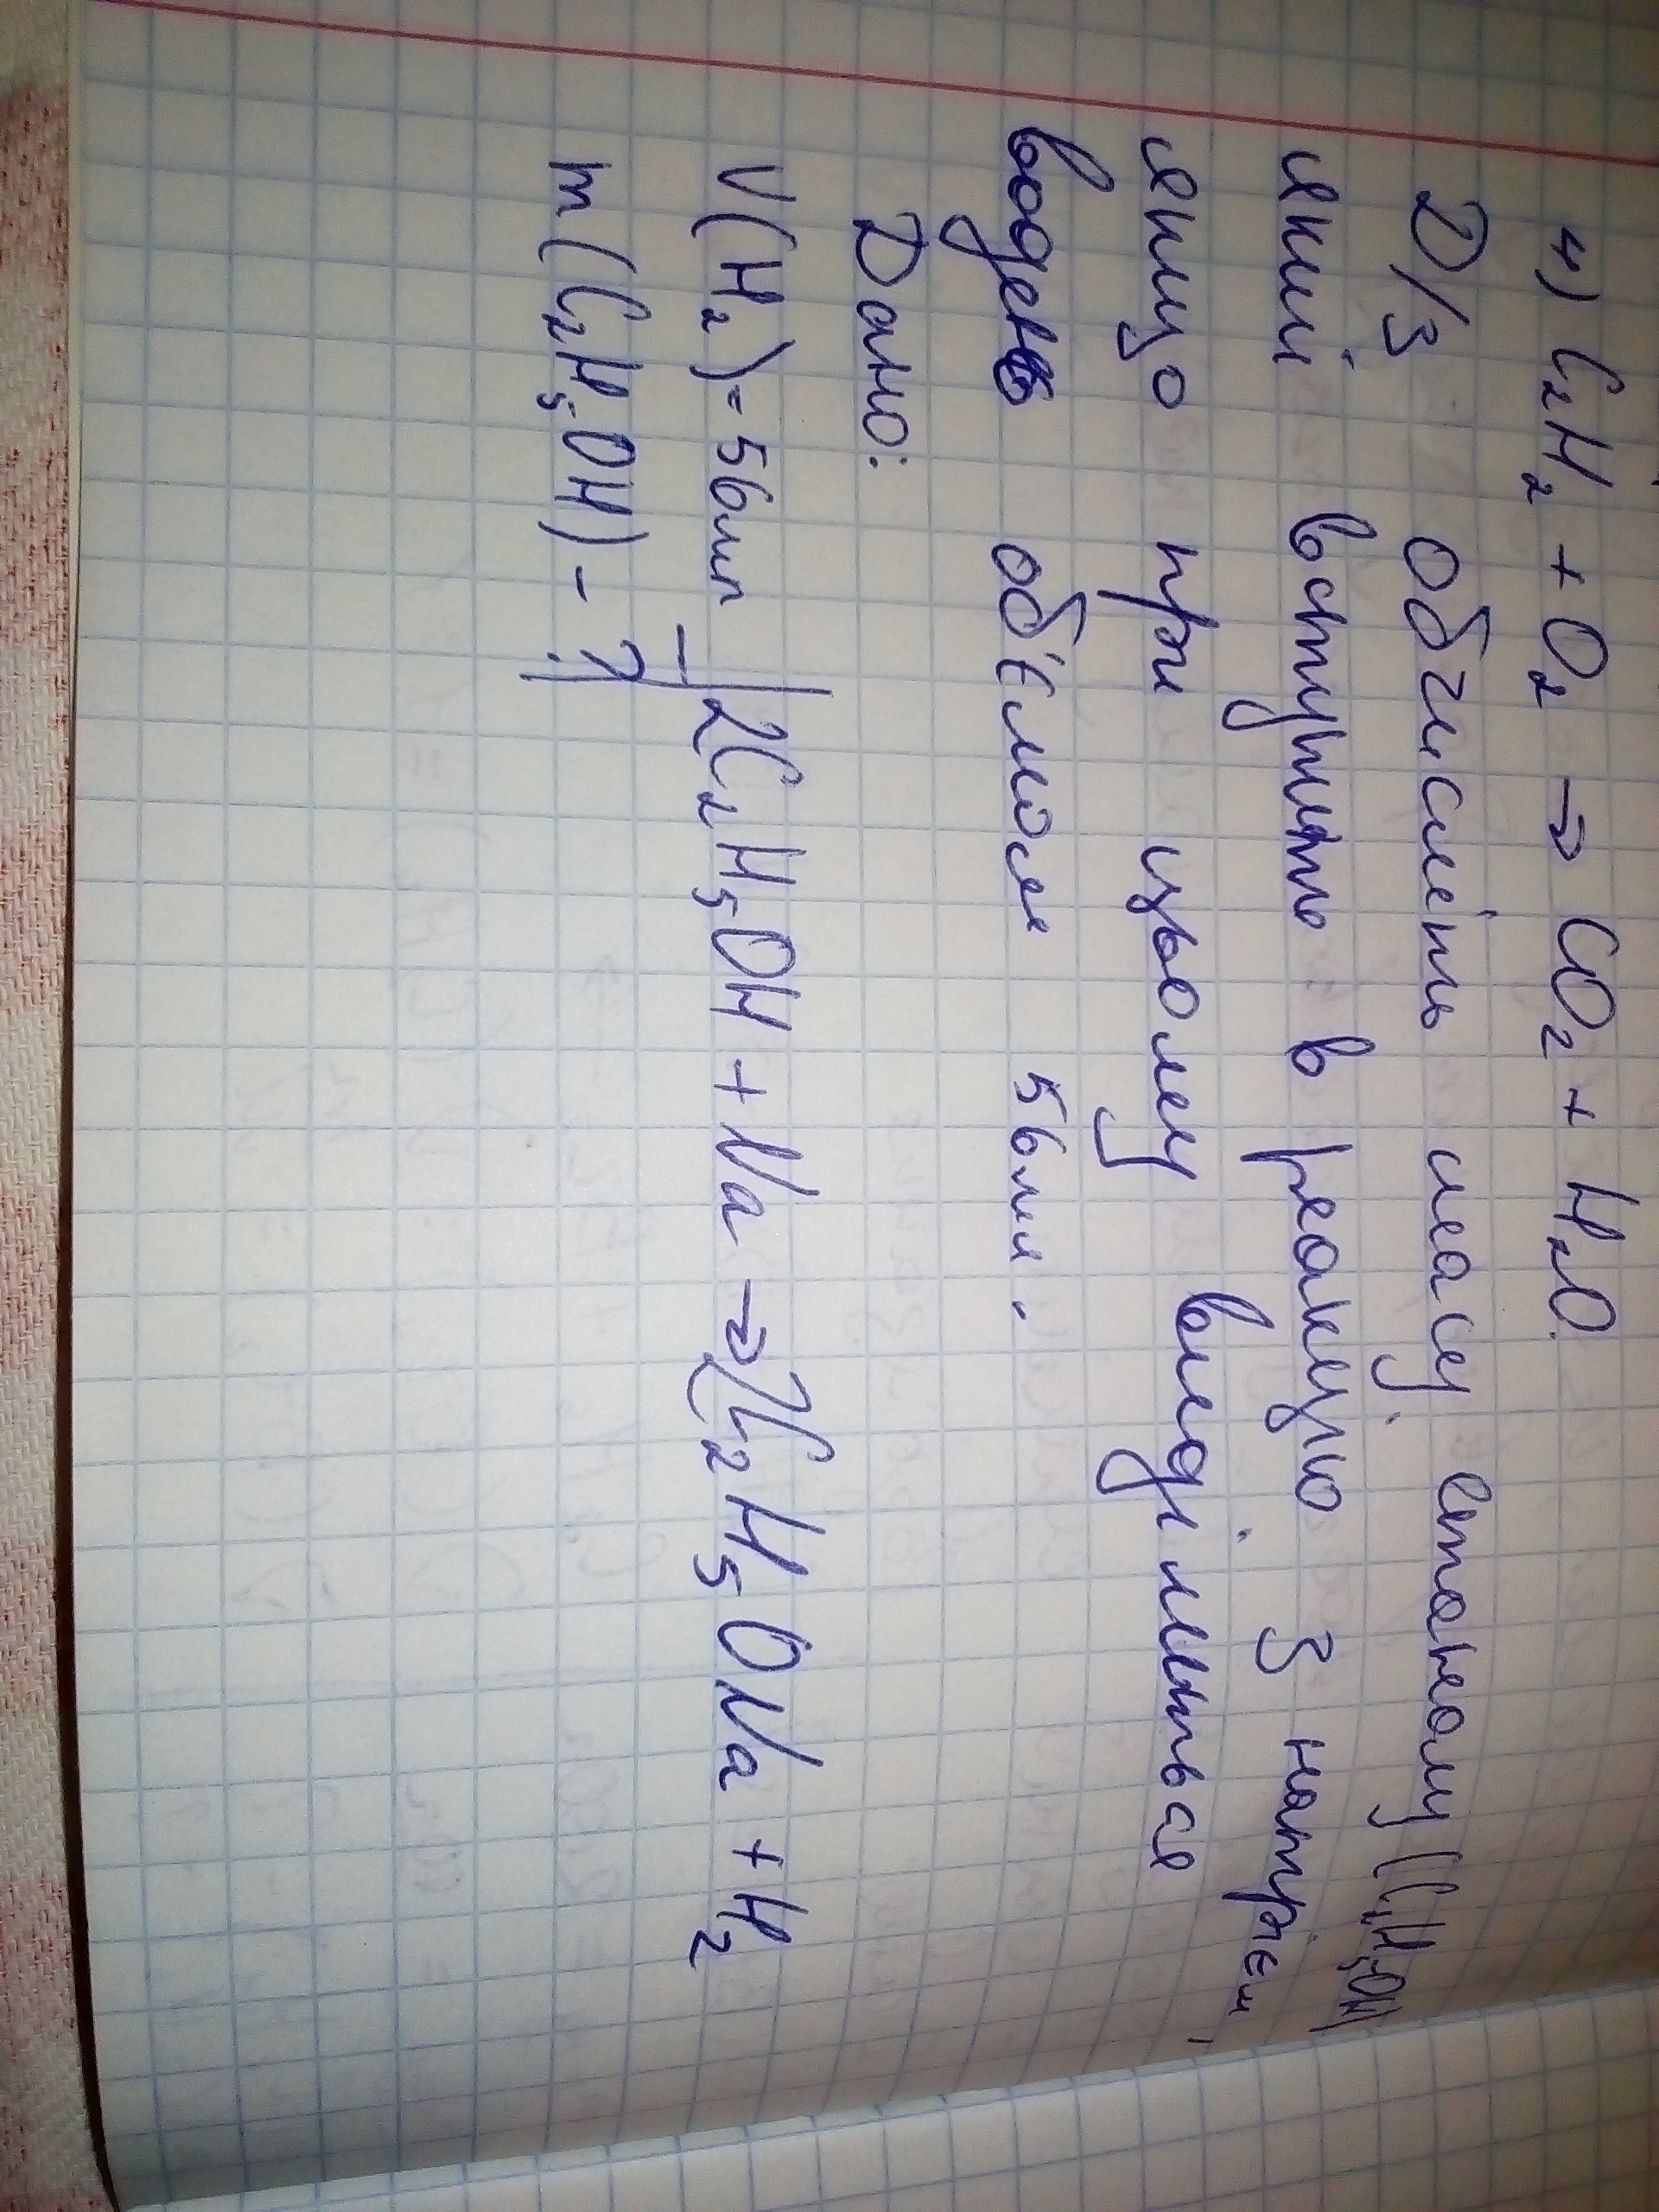 4) C₂H₂ + O₂ → CO₂ + H₂O.
Д/З Обчисліть масу етанолу (C₂H₅OH)
який вступить в реакцію з натрієм,
якщо при цьому виділиться
водень об'ємом 56мл.
Дано:
V(H₂)= 56мл | 2C₂H₅OH + Na → 2C₂H₅ONa + H₂
m(C₂H₅OH) - ?